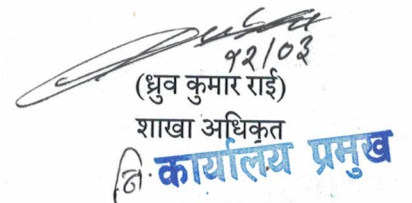 १२/०३
(ध्रुव कुमार राई)
शाखा अधिकृत
नि. कार्यालय प्रमुख